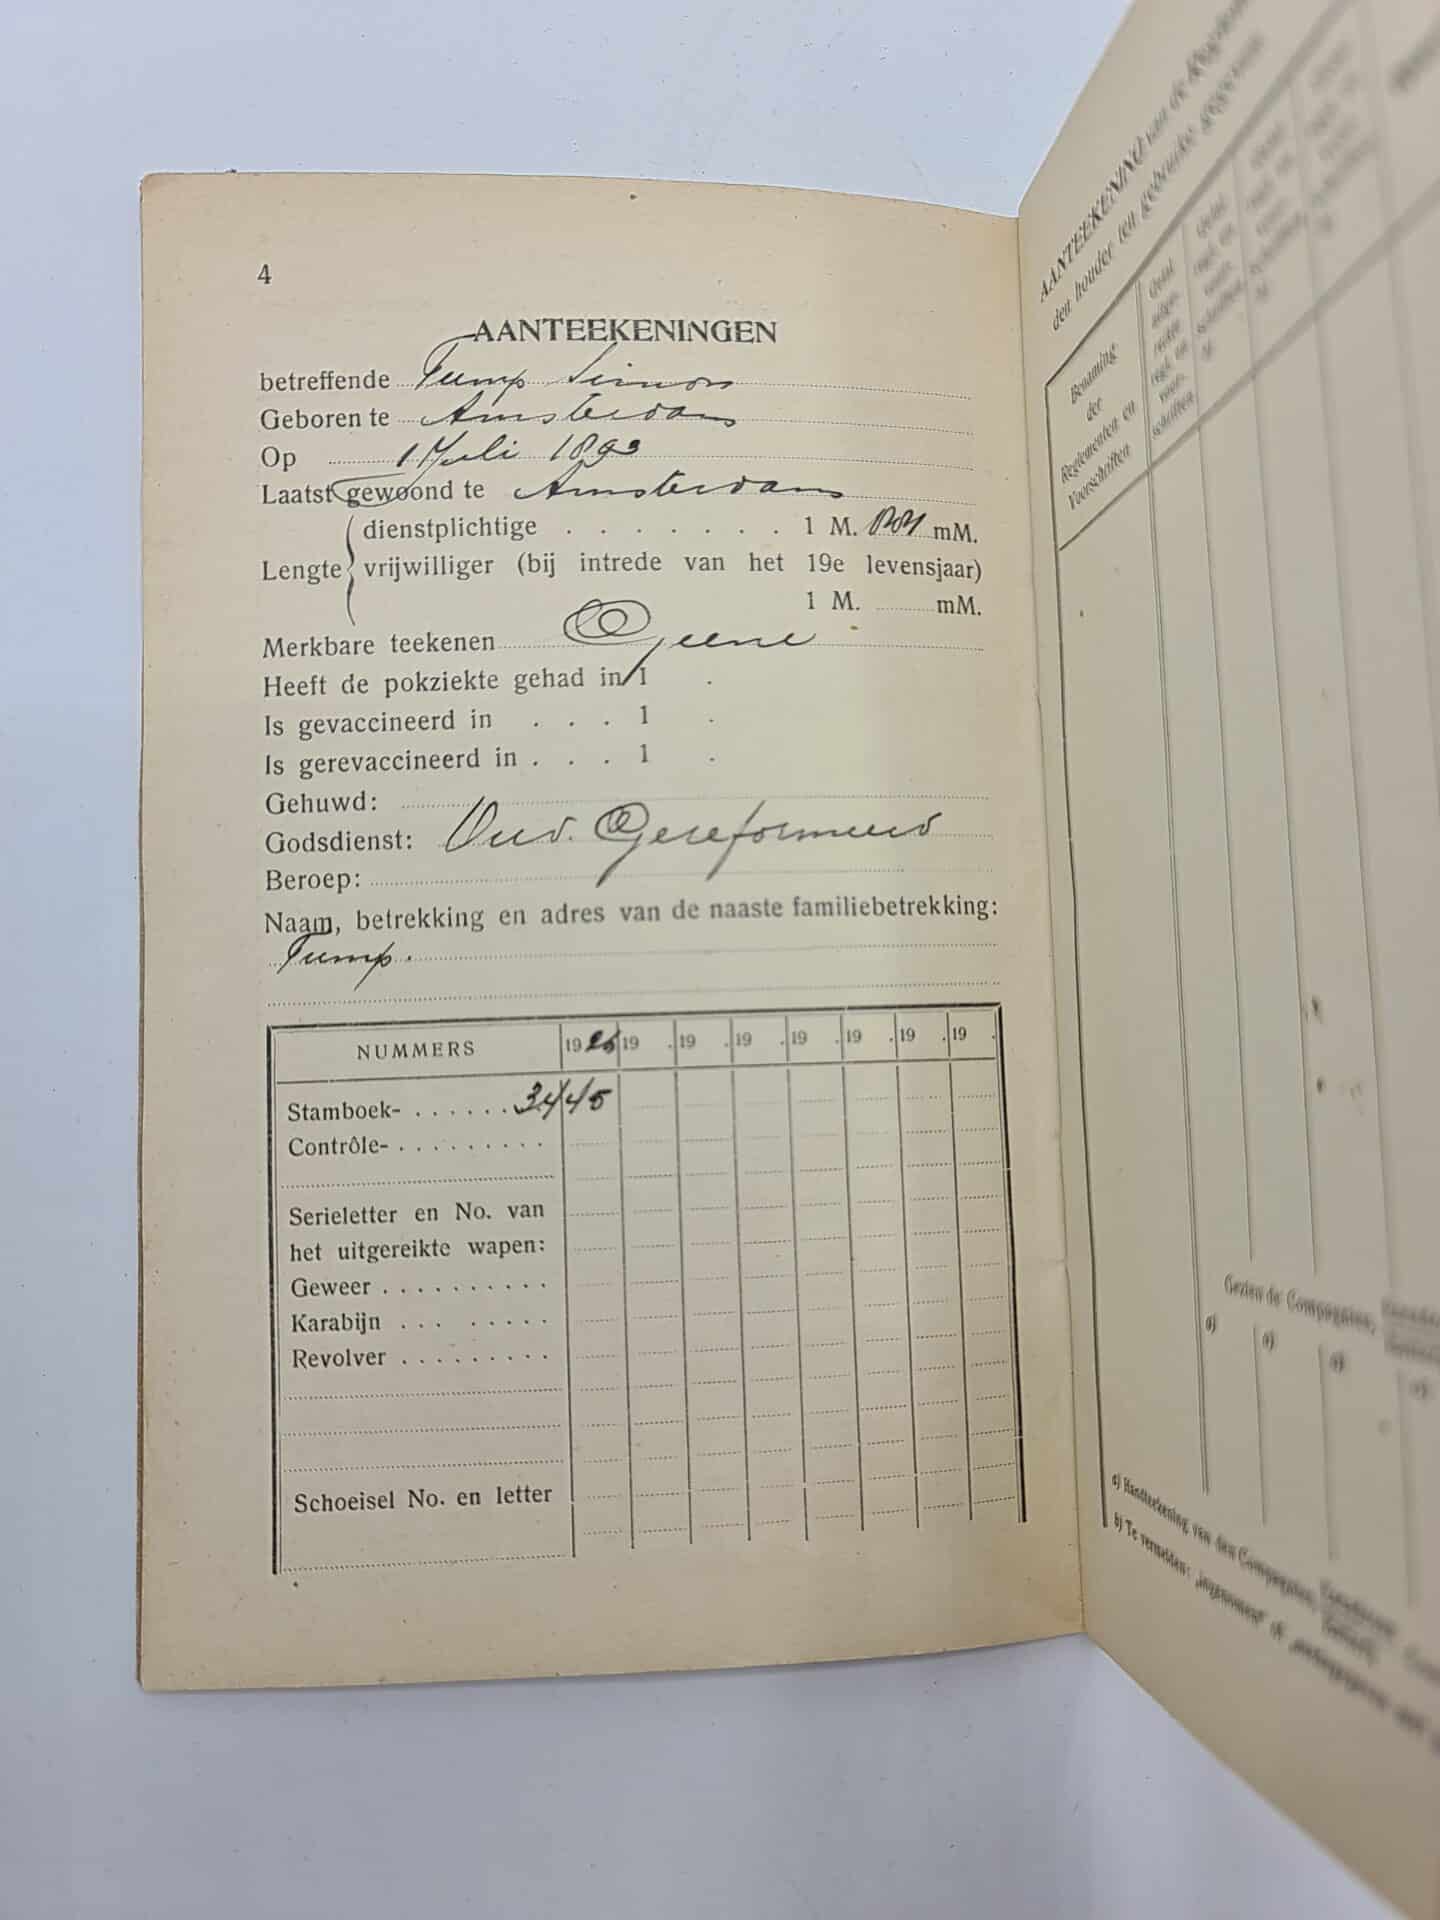 4
AANTEEKENINGEN
betreffende Tump Simon
Geboren te Amsterdam
Op 1 Juli 1893
Laatst gewoond te Amsterdam
dienstplichtige . . . . . . . 1 M. mM.
Lengte vrijwilliger (bij intrede van het 19e levensjaar)
1 M. mM.
Merkbare teekenen Geene
Heeft de pokziekte gehad in 1 .
Is gevaccineerd in . . . 1 .
Is gerevaccineerd in . . . 1 .
Gehuwd:
Godsdienst: Gereformeerd
Beroep:
Naam, betrekking en adres van de naaste familiebetrekking:
Tump.
NUMMERS 1926 19 . 19 . 19 . 19 . 19 . 19 . 19 .
Stamboek- . . . . . . 3445
Contrôle- . . . . . . . . .
Serieletter en No. van
het uitgereikte wapen:
Geweer . . . . . . . . . .
Karabijn . . . . . . . .
Revolver . . . . . . . . .
Schoeisel No. en letter
AANTEEKENING van de
den houder ten gebruike
Benaming
der
Reglementen en
Voorschriften
Getal
uitge-
reikte
regl. en
voor-
schriften
Getal
regl. en
voor-
schriften
Gezien de Compagnies,
a) a) a) a)
a) Handteekening van den Compagnies,
b) Te vermelden: